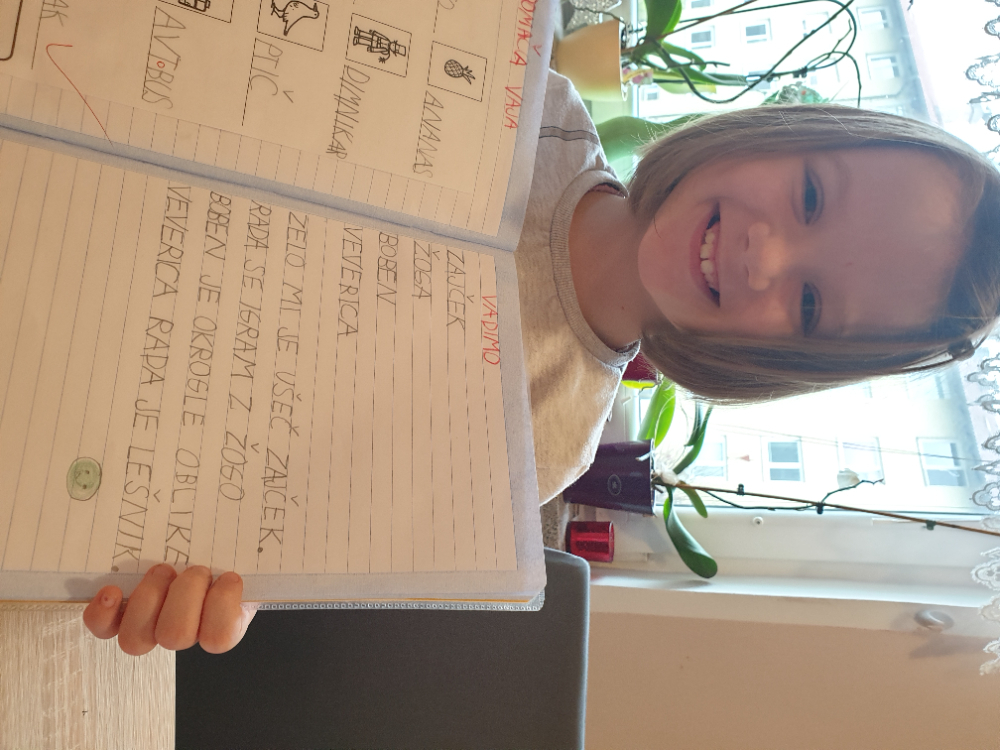 DOMAČA VAJA
ANANAS
DIMNIKAR
PTIČ
AVTOBUS
VADIMO
ZAJČEK
ŽOGA
BOBEN
VEVERICA
ZELO MI JE VŠEČ ZAJČEK.
RADA SE IGRAM Z ŽOGO
BOBEN JE OKROGLE OBLIKE
VEVERICA RADA JE LEŠNIK.